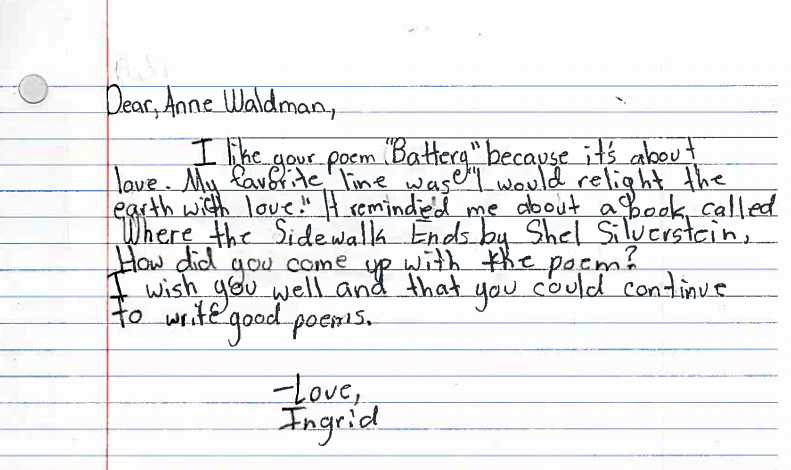 Dear, Anne Waldman,
I like your poem "Battery" because it's about
love. My favorite line was "I would relight the
earth with love." It remindied me about a book called
Where the Sidewalk Ends by Shel Silverstein,
How did you come up with the poem?
I wish you well and that you could continue
to write good poems.
-Love,
Ingrid